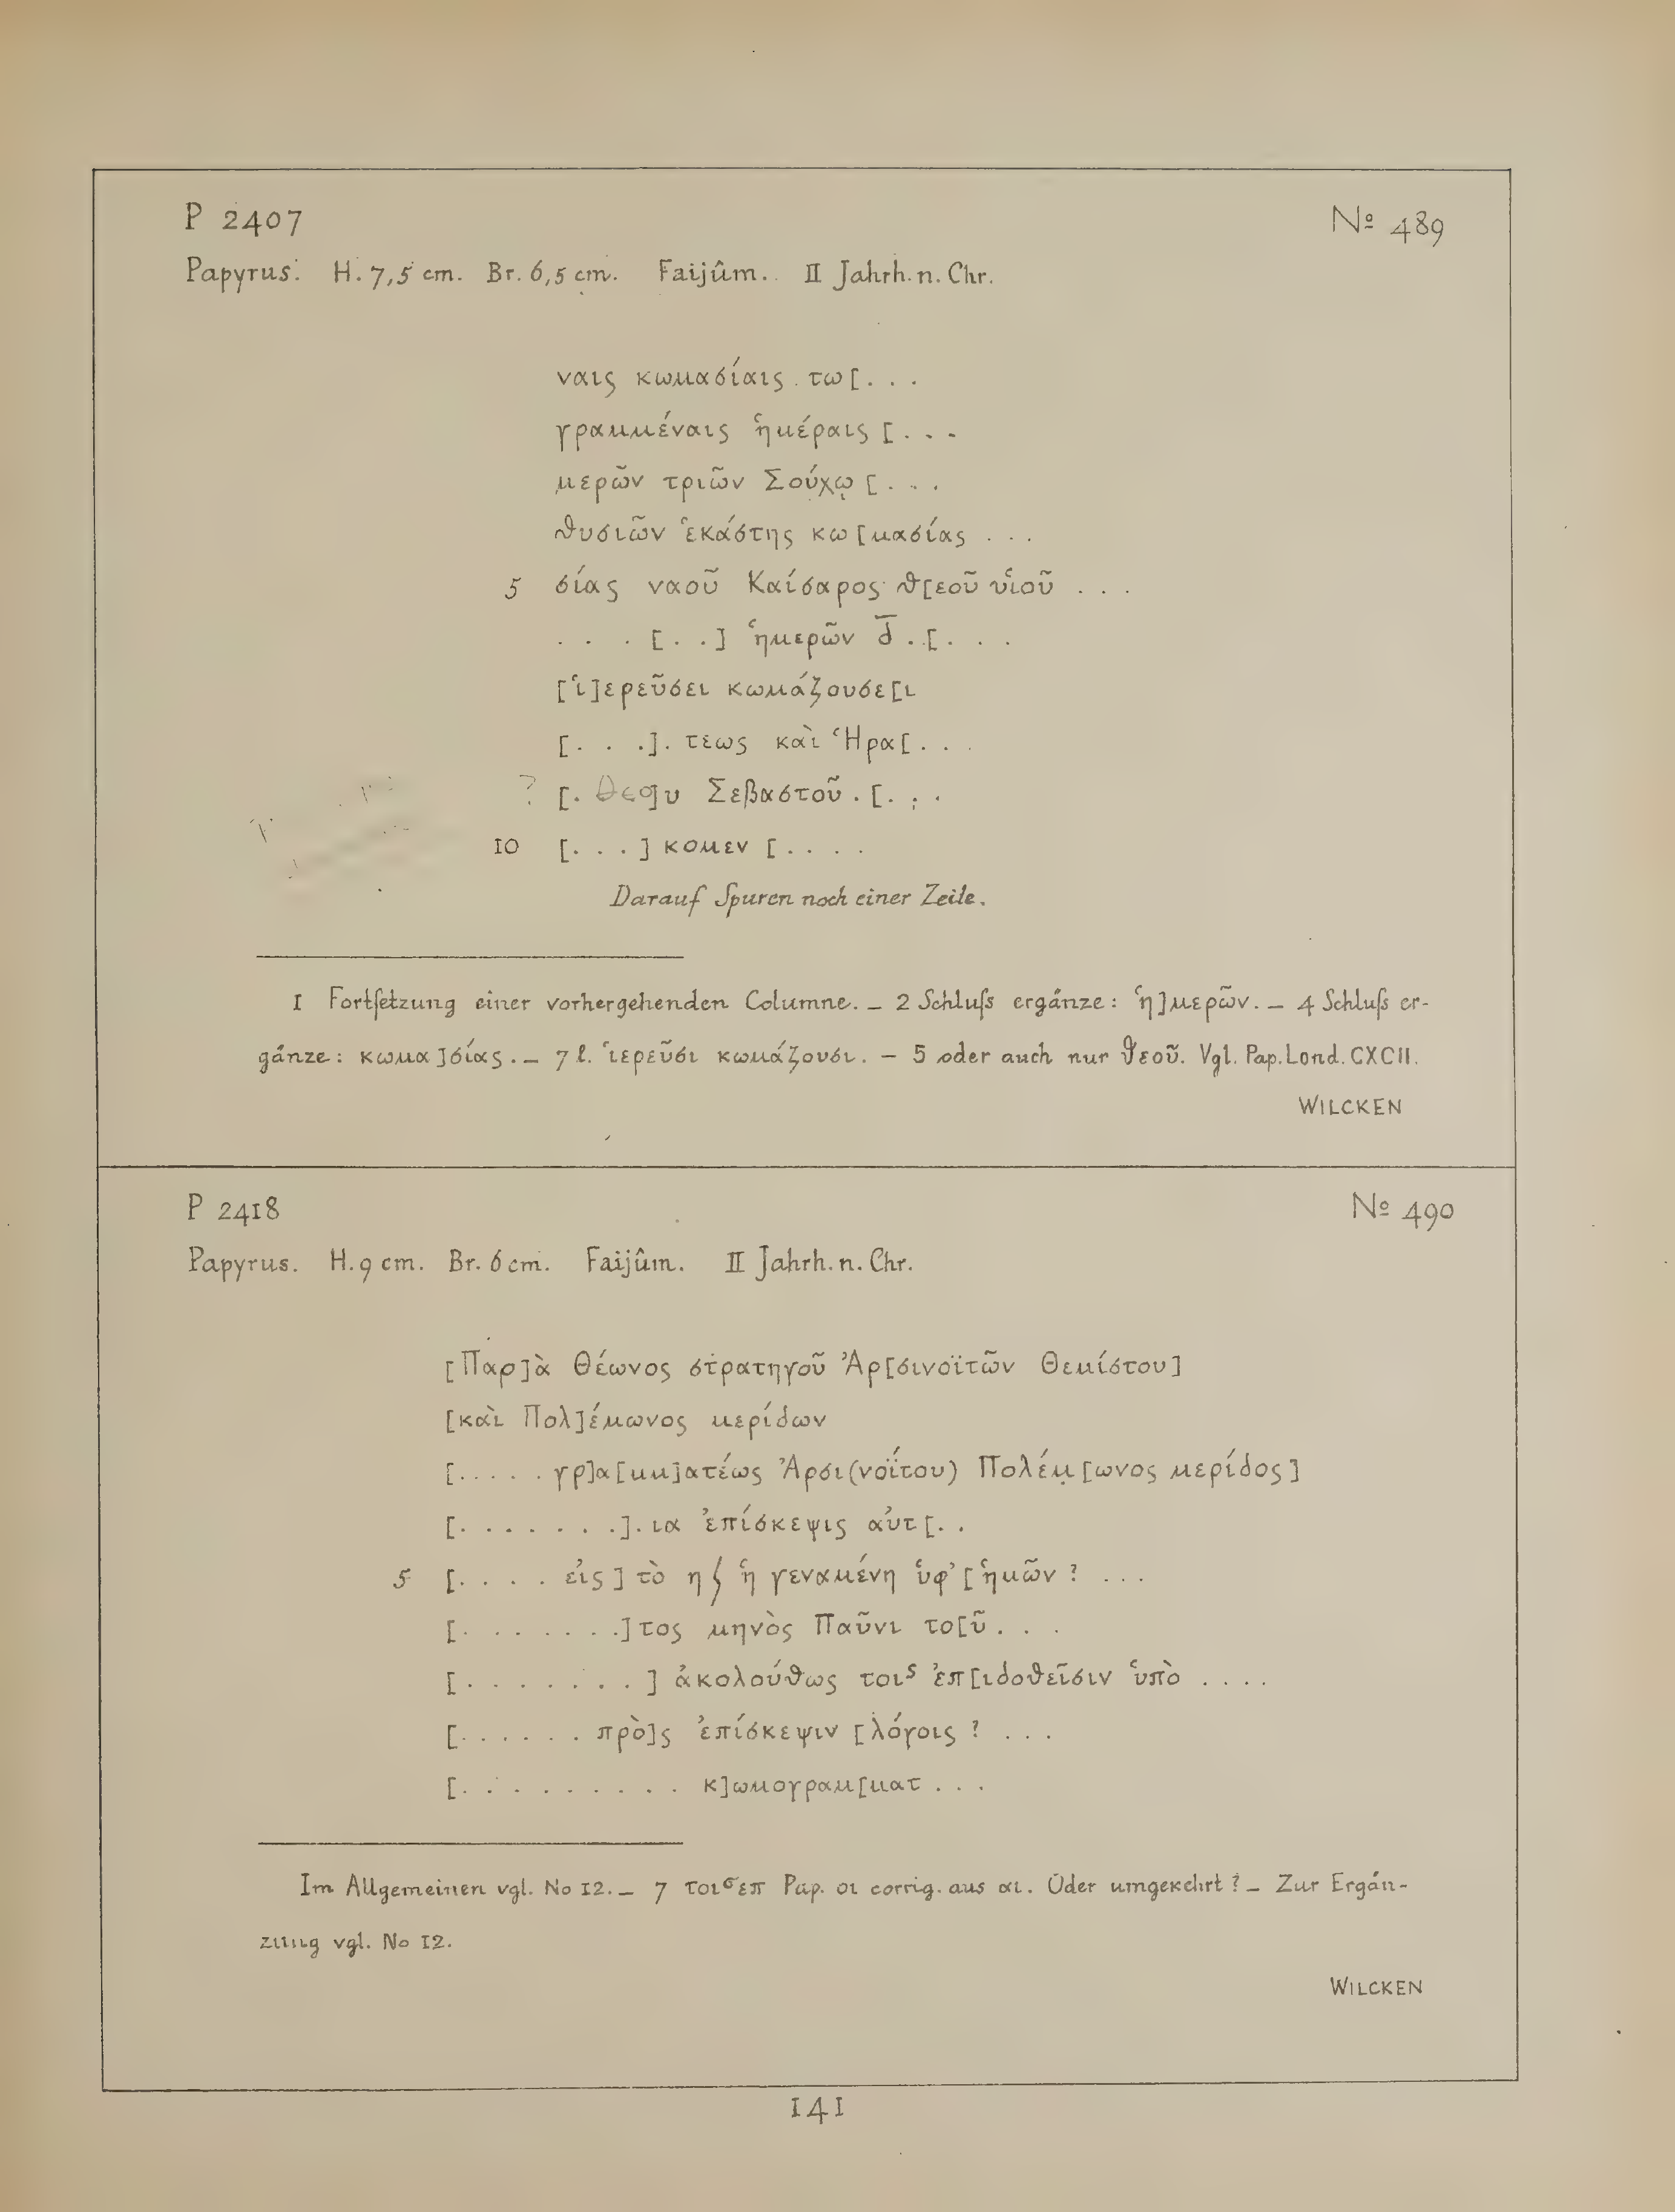 P 2407 Nº 489
Papyrus. H. 7,5 cm. Br. 6,5 cm. Faijûm. II Jahrh. n. Chr.
ναις κωμασίαις τω[. . .
γραμμέναις ἡμέραις [. . .
μερῶν τριῶν Σούχῳ [. . .
θυσιῶν ἑκάστης κω[μασίας . . .
5 σίας ναοῦ Καίσαρος θ[εοῦ υἱοῦ . . .
. . . [. .] ἡμερῶν δ̅ . [. . .
[ἱ]ερεῦσει κωμάζουσε[ι
[. . .]. τεως καὶ Ἡρα[. . .
? [. θεο]υ Σεβαστοῦ . [. . .
10 [. . .] κομεν [. . . .
Darauf Spuren noch einer Zeile.
1 Fortſetzung einer vorhergehenden Columne. — 2 Schluſs ergänze: ἡ]μερῶν. — 4 Schluſs er-
gänze: κωμα]σίας. — 7 l. ἱερεῦσι κωμάζουσι. — 5 oder auch nur θεοῦ. Vgl. Pap. Lond. CXCII.
WILCKEN
P 2418 Nº 490
Papyrus. H. 9 cm. Br. 6 cm. Faijûm. II Jahrh. n. Chr.
[Παρ]ὰ Θέωνος στρατηγοῦ Ἀρ[σινοϊτῶν Θεμίστου]
[καὶ Πολ]έμωνος μερίδων
[. . . . . γρ]α[μμ]ατέως Ἀρσι(νοΐτου) Πολέμ̣[ωνος μερίδος]
[. . . . . . .]. ια ἐπίσκεψις αὐτ[. .
5 [. . . . εἰς] τὸ η ∫ ἡ γεναμένη ὑφ’ [ἡμῶν ? . . .
[. . . . . . .]τος μηνὸς Παῦνι το[ῦ . . .
[. . . . . . . ] ἀκολούθως τοιˢ ἐπ[ιδοθεῖσιν ὑπὸ . . . .
[. . . . . . πρὸ]ς ἐπίσκεψιν [λόγοις ? . . .
[. . . . . . . . . κ]ωμογραμ[ματ . . .
Im Allgemeinen vgl. No 12. — 7 τοι^σεπ Pap. οι corrig. aus αι. Oder umgekehrt? — Zur Ergän-
zung vgl. No 12.
WILCKEN
141